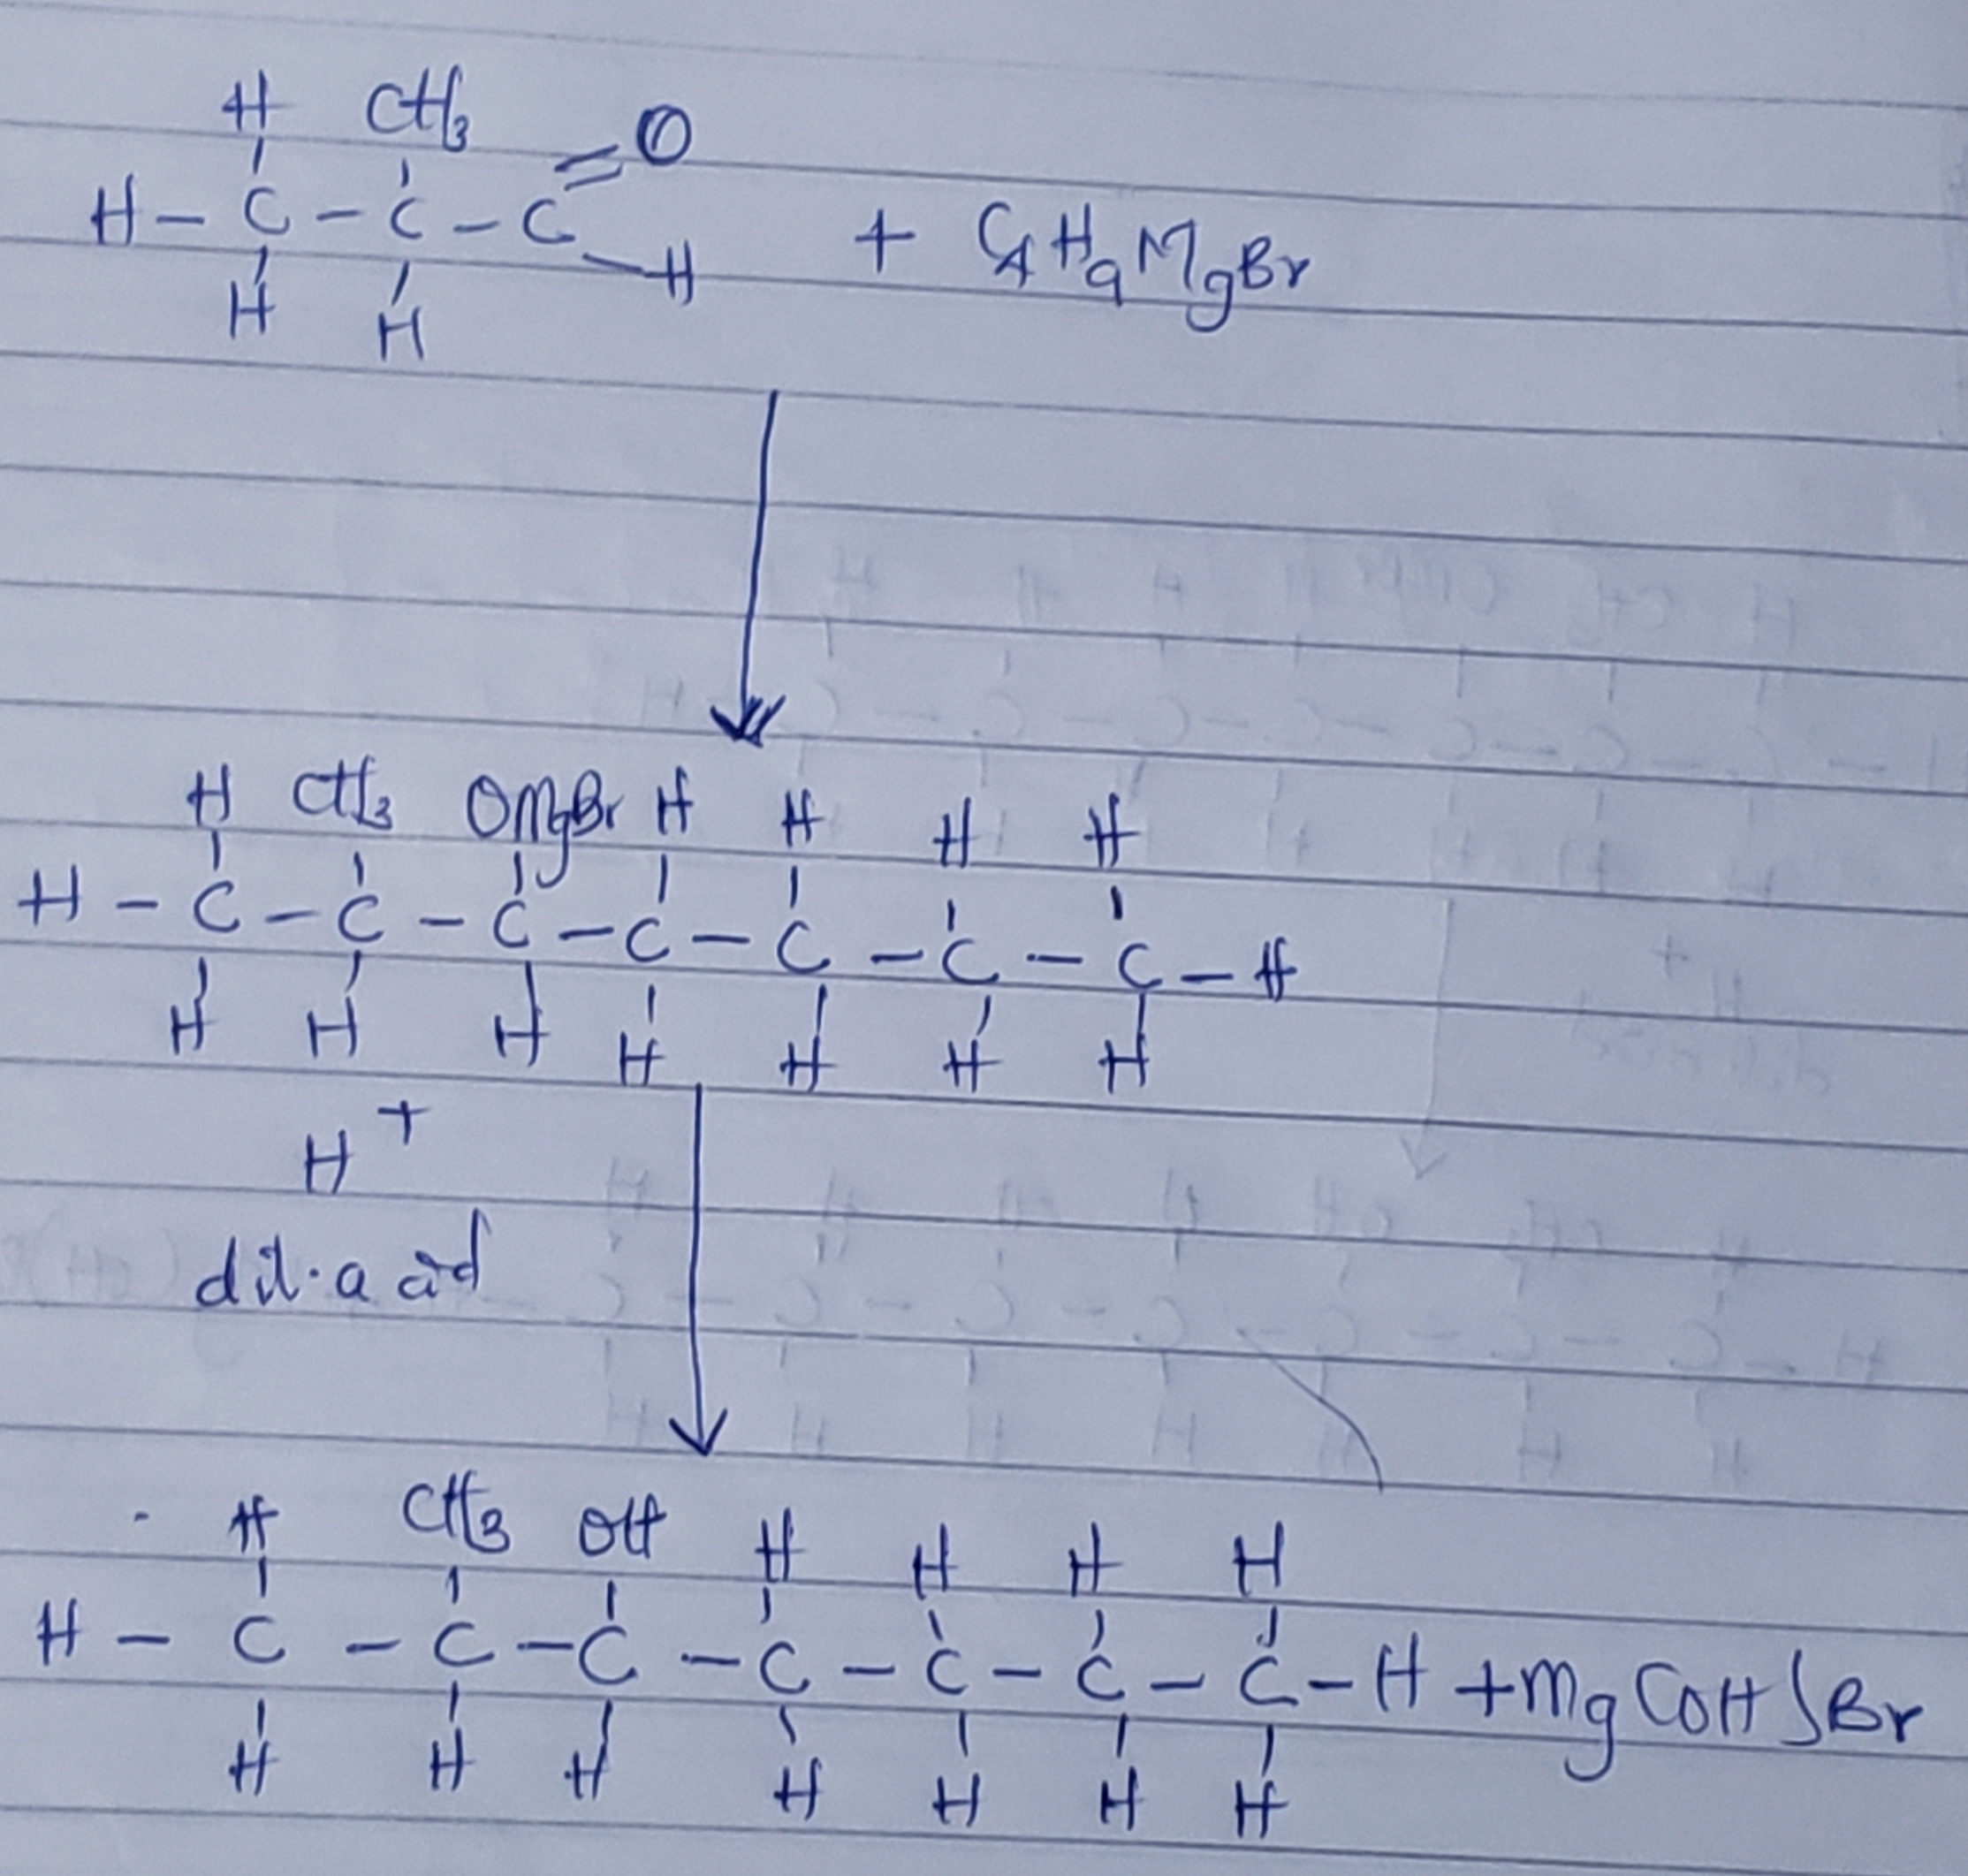 H CH3
H – C – C – C =O
– H
H H
+ C4H9MgBr
H CH3 OMgBr H H H H
H – C – C – C – C – C – C – C – H
H H H H H H H
H+
dil. acid
H CH3 OH H H H H
H – C – C – C – C – C – C – C – H + Mg(OH)Br
H H H H H H H